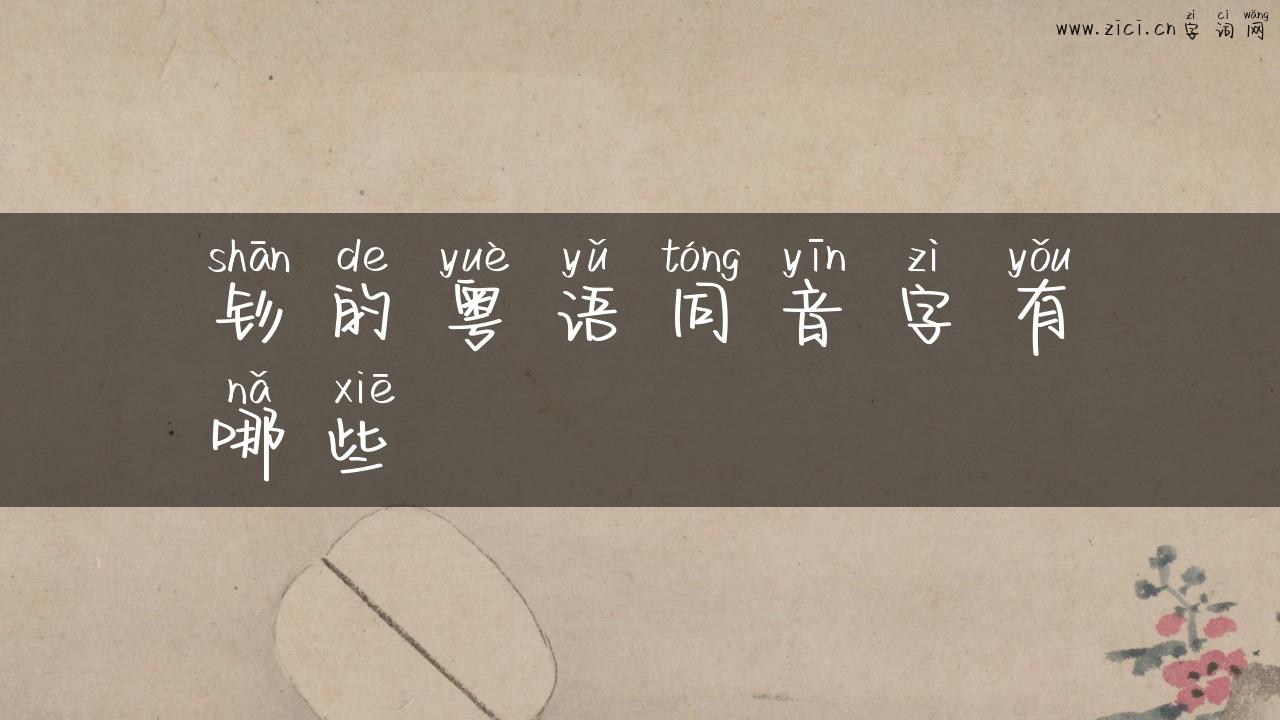 zì cí wǎng
www.zici.cn 字 词 网
shān de yuè yǔ tóng yīn zì yǒu
钐 的 粤 语 同 音 字 有
nǎ xiē
哪 些